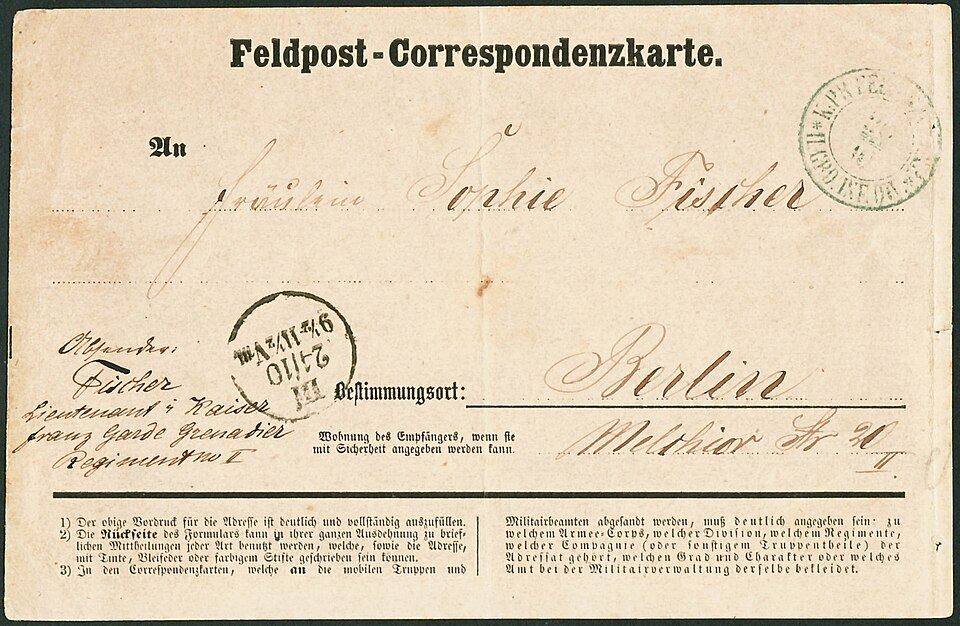 Feldpost-Correspondenzkarte.
An
Fräulein Sophie Fischer
K.PR.FEL
II GRD. INF. DIV.
BI
24/10
9½-11½ Vm
Absender:
Fischer
Lieutenant i Kaiser
franz Garde Grenadier
Regiment no II
Bestimmungsort:
Berlin
Wohnung des Empfängers, wenn sie
mit Sicherheit angegeben werden kann.
Melchior Str 20
II
1) Der obige Vordruck für die Adresse ist deutlich und vollständig auszufüllen.
2) Die Rückseite des Formulars kann in ihrer ganzen Ausdehnung zu brief-
lichen Mittheilungen jeder Art benutzt werden, welche, sowie die Adresse,
mit Tinte, Bleifeder oder farbigem Stifte geschrieben sein können.
3) In den Correspondenzkarten, welche an die mobilen Truppen und
Militairbeamten abgesandt werden, muß deutlich angegeben sein: zu
welchem Armee-Corps, welcher Division, welchem Regimente,
welcher Compagnie (oder sonstigem Truppentheile) der
Adressat gehört, welchen Grad und Charakter oder welches
Amt bei der Militairverwaltung derselbe bekleidet.